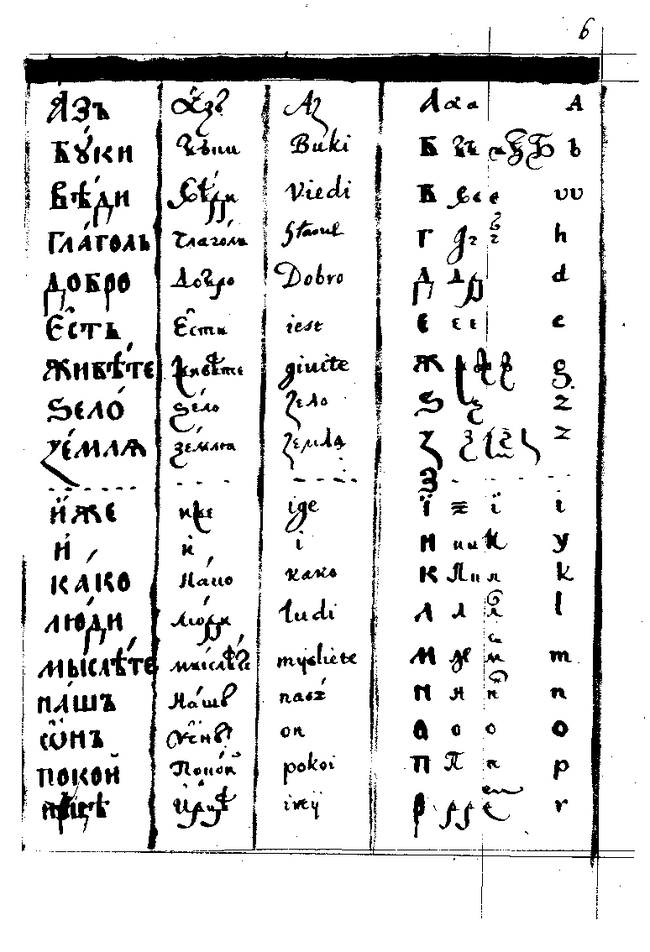 6
А́ЗЪ Азъ Az А а а A
БꙊ́КИ Бꙋки Buki Б Б b
ВѢ́ДИ вѣди Viedi В в в в vv
ГЛАГО́ЛЬ глаголь Glagol Г г г h
ДОБРО добро Dobro Д д д d
Е҆́СТЬ есть iest Є є є e
ЖИВѢ́ТЕ живѣте giuite Ж ж ж ж g
ЅЕЛО́ ѕело zelo Ѕ ѕ z
ꙀЕ́МЛѦ земля zemla Ꙁ з z
З
И҆́ЖЕ иже ige Ї ї i
И҆ и i И и и y
КА́КО како kako К к к k
ЛЮ́ДИ люди ludi Л л л l
МЫСЛѢ́ТЕ мыслѣте myśliete М м м m
НА́ШЪ нашъ nasz Н н н n
Ѻ҆́НЪ онъ on О о о o
ПОКО́Й покой pokoi П п п p
рцѣ Р р р r